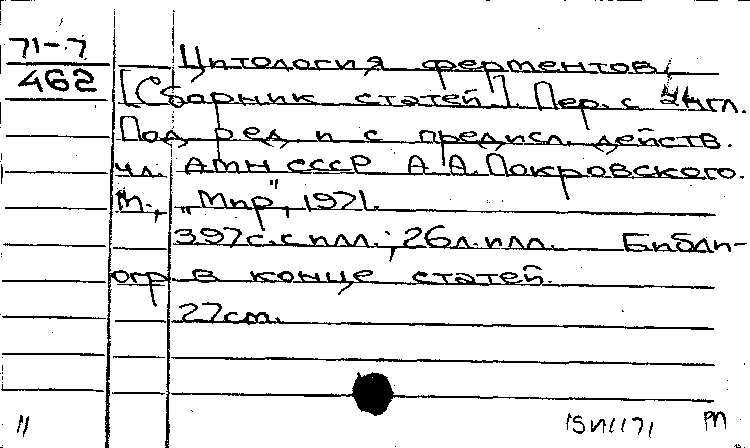 71-7
462
Цитология ферментов.
[Сборник статей]. Пер. с англ.
Под ред. и с предисл. действ.
чл. АМН СССР А.А. Покровского.
М., „Мир", 1971.
397 с. с илл.; 26 л. илл. Библи-
огр. в конце статей.
27 см.
11
М